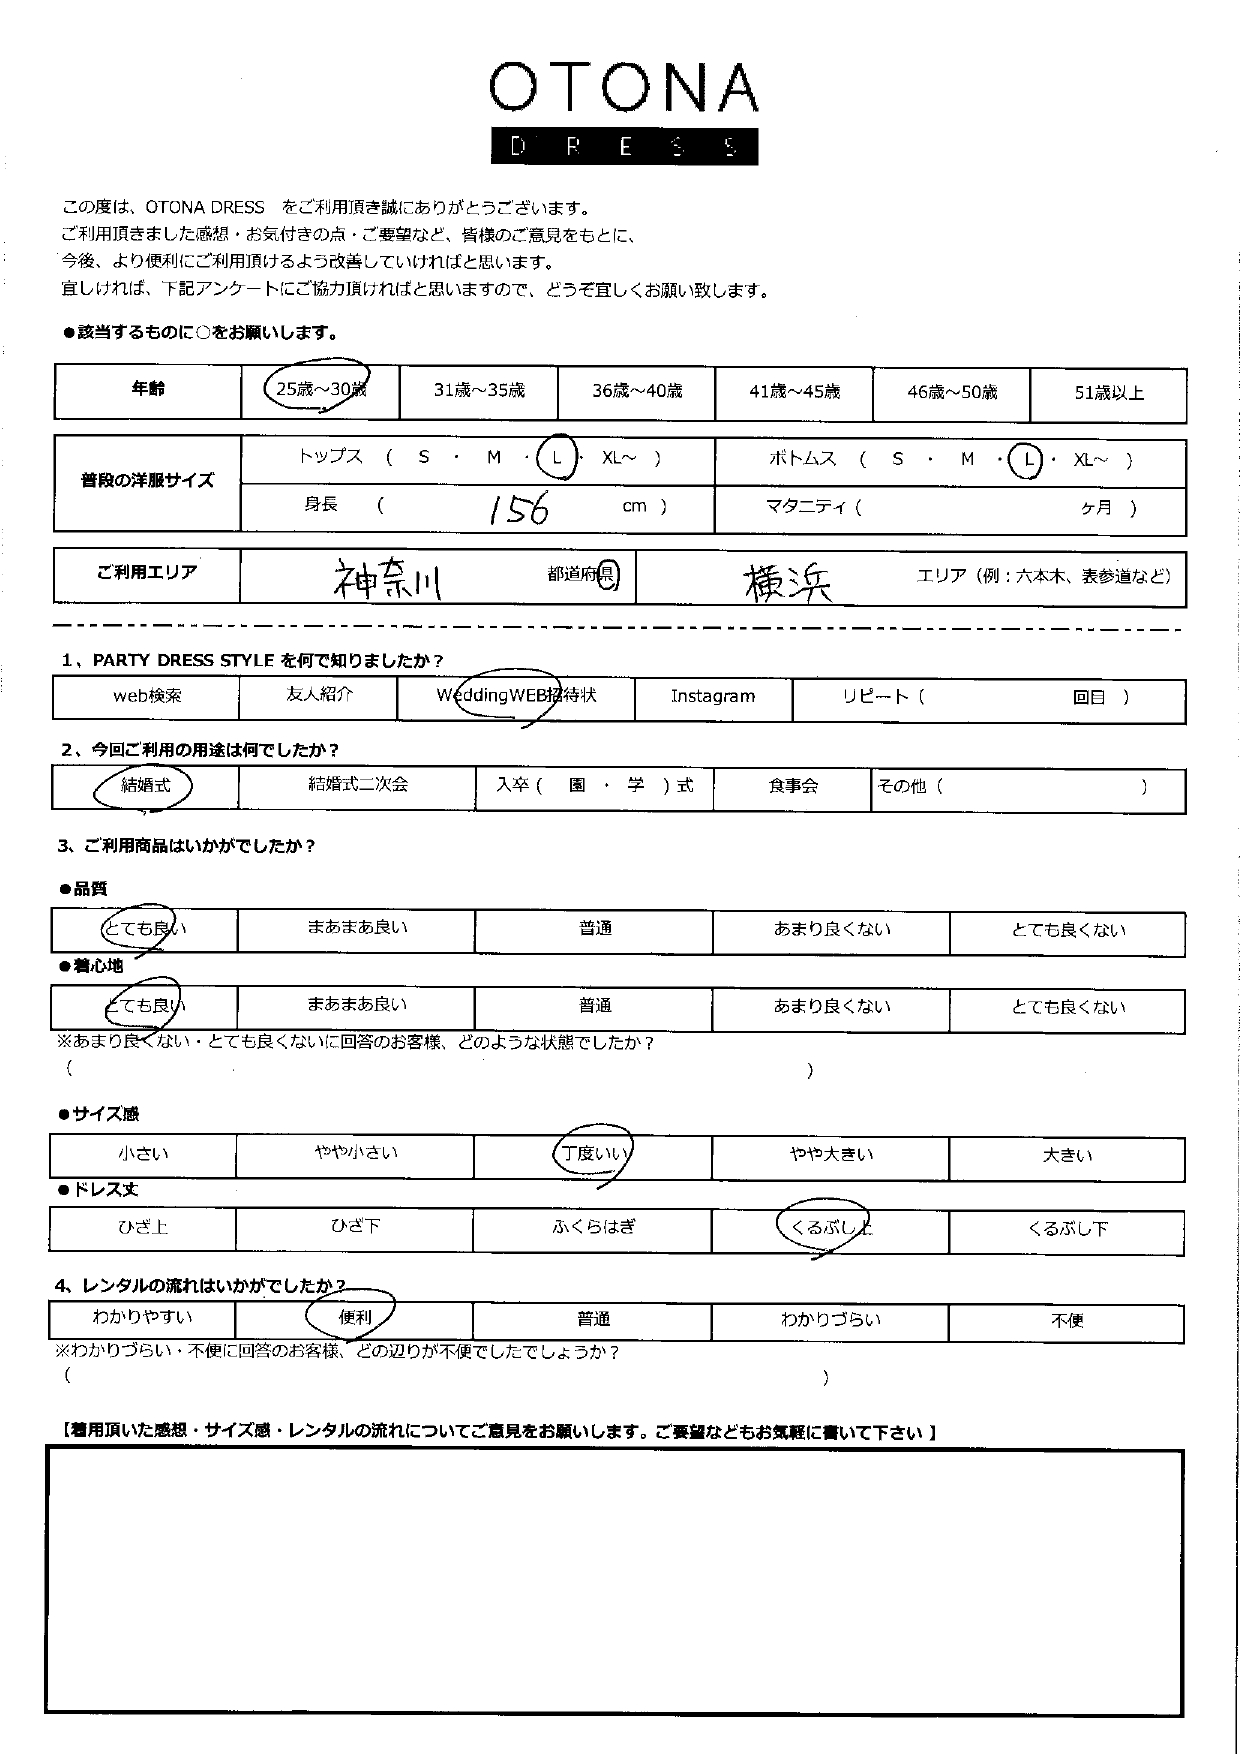 OTONA
DRESS
この度は、OTONA DRESS をご利用頂き誠にありがとうございます。
ご利用頂きました感想・お気付きの点・ご要望など、皆様のご意見をもとに、
今後、より便利にご利用頂けるよう改善していければと思います。
宜しければ、下記アンケートにご協力頂ければと思いますので、どうぞ宜しくお願い致します。
●該当するものに○をお願いします。
年齢 25歳～30歳 31歳～35歳 36歳～40歳 41歳～45歳 46歳～50歳 51歳以上
普段の洋服サイズ トップス ( S ・ M ・ L ・ XL～ ) ボトムス ( S ・ M ・ L ・ XL～ )
身長 ( 156 cm ) マタニティ ( ヶ月 )
ご利用エリア 神奈川 都道府県 横浜 エリア（例：六本木、表参道など）
1、PARTY DRESS STYLE を何で知りましたか？
web検索 友人紹介 WeddingWEB招待状 Instagram リピート ( 回目 )
2、今回ご利用の用途は何でしたか？
結婚式 結婚式二次会 入卒 ( 園 ・ 学 ) 式 食事会 その他 ( )
3、ご利用商品はいかがでしたか？
●品質
とても良い まあまあ良い 普通 あまり良くない とても良くない
●着心地
とても良い まあまあ良い 普通 あまり良くない とても良くない
※あまり良くない・とても良くないに回答のお客様、どのような状態でしたか？
( )
●サイズ感
小さい やや小さい 丁度いい やや大きい 大きい
●ドレス丈
ひざ上 ひざ下 ふくらはぎ くるぶし上 くるぶし下
4、レンタルの流れはいかがでしたか？
わかりやすい 便利 普通 わかりづらい 不便
※わかりづらい・不便に回答のお客様、どの辺りが不便でしたでしょうか？
( )
【着用頂いた感想・サイズ感・レンタルの流れについてご意見をお願いします。ご要望などもお気軽に書いて下さい】